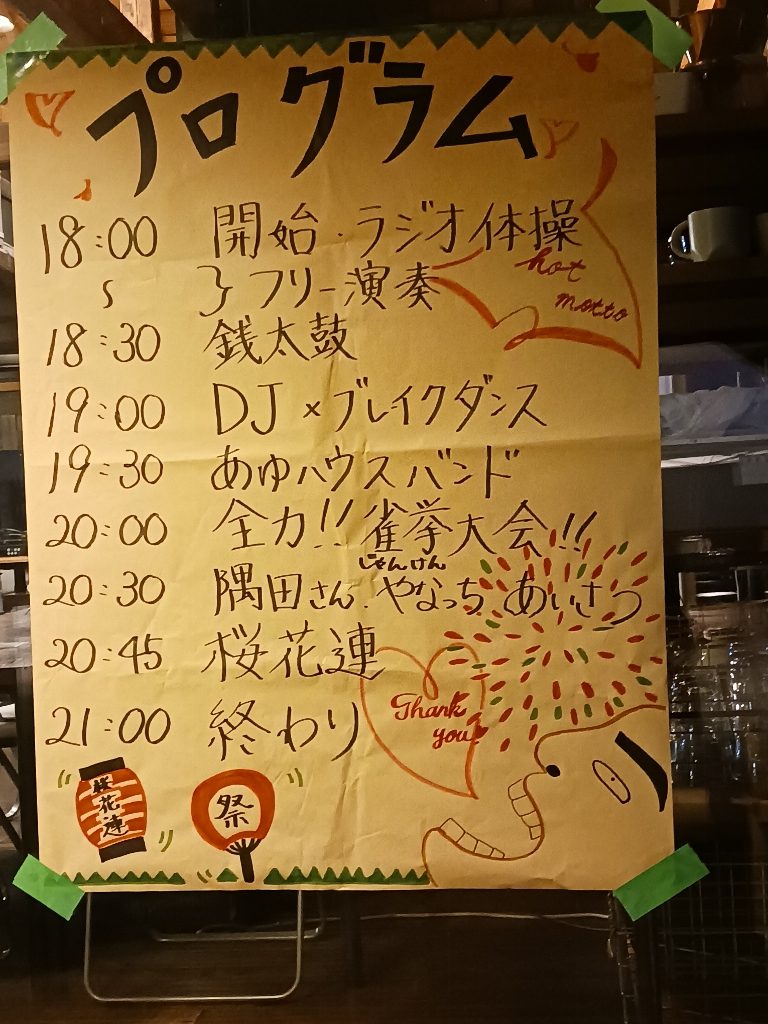 プログラム
18:00 開始・ラジオ体操
〜 フリー演奏
hot
motto
18:30 銭太鼓
19:00 DJ×ブレイクダンス
19:30 あゆハウスバンド
20:00 全力!!雀挙大会!!
じゃんけん
20:30 隅田さん.やなっち あいさつ
20:45 桜花連
21:00 終わり
Thank
you!
桜花連
祭